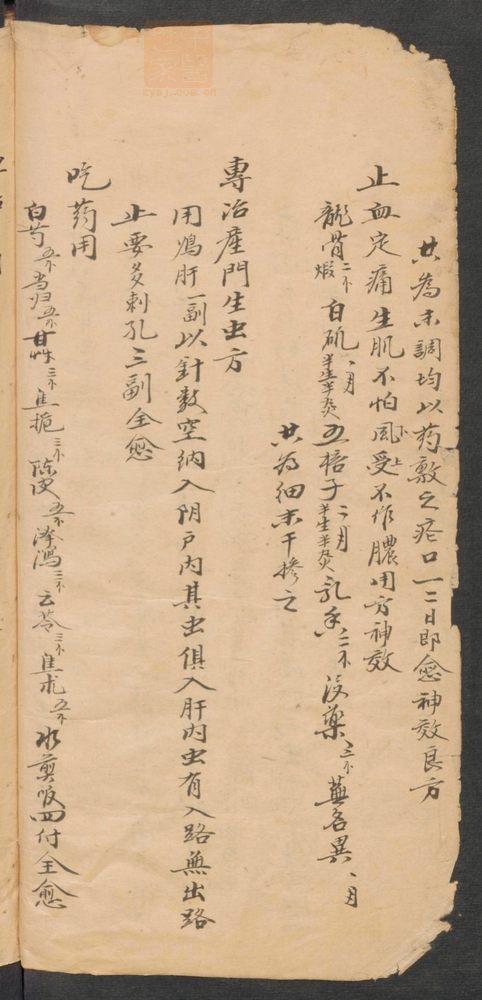 共為末調均以药敷之疮口一二日即愈神效良方
止血定痛生肌不怕風受不作膿用方神效
龍骨二个煆 白矾一月半生半灸 五棓子二月半生半灸 乳香二个 没藥三个 蕪名異一月
共為细末干掺之
專治産門生虫方
用鳮肝一副以針数空纳入阴户内其虫俱入肝内虫有入路無出路
止要多刺孔三副全愈
吃药用
白芍五个 当归五个 甘艸三个 焦栀三个 陈皮五个 泽瀉三个 云苓三个 焦朮五个 水煎服四付全愈